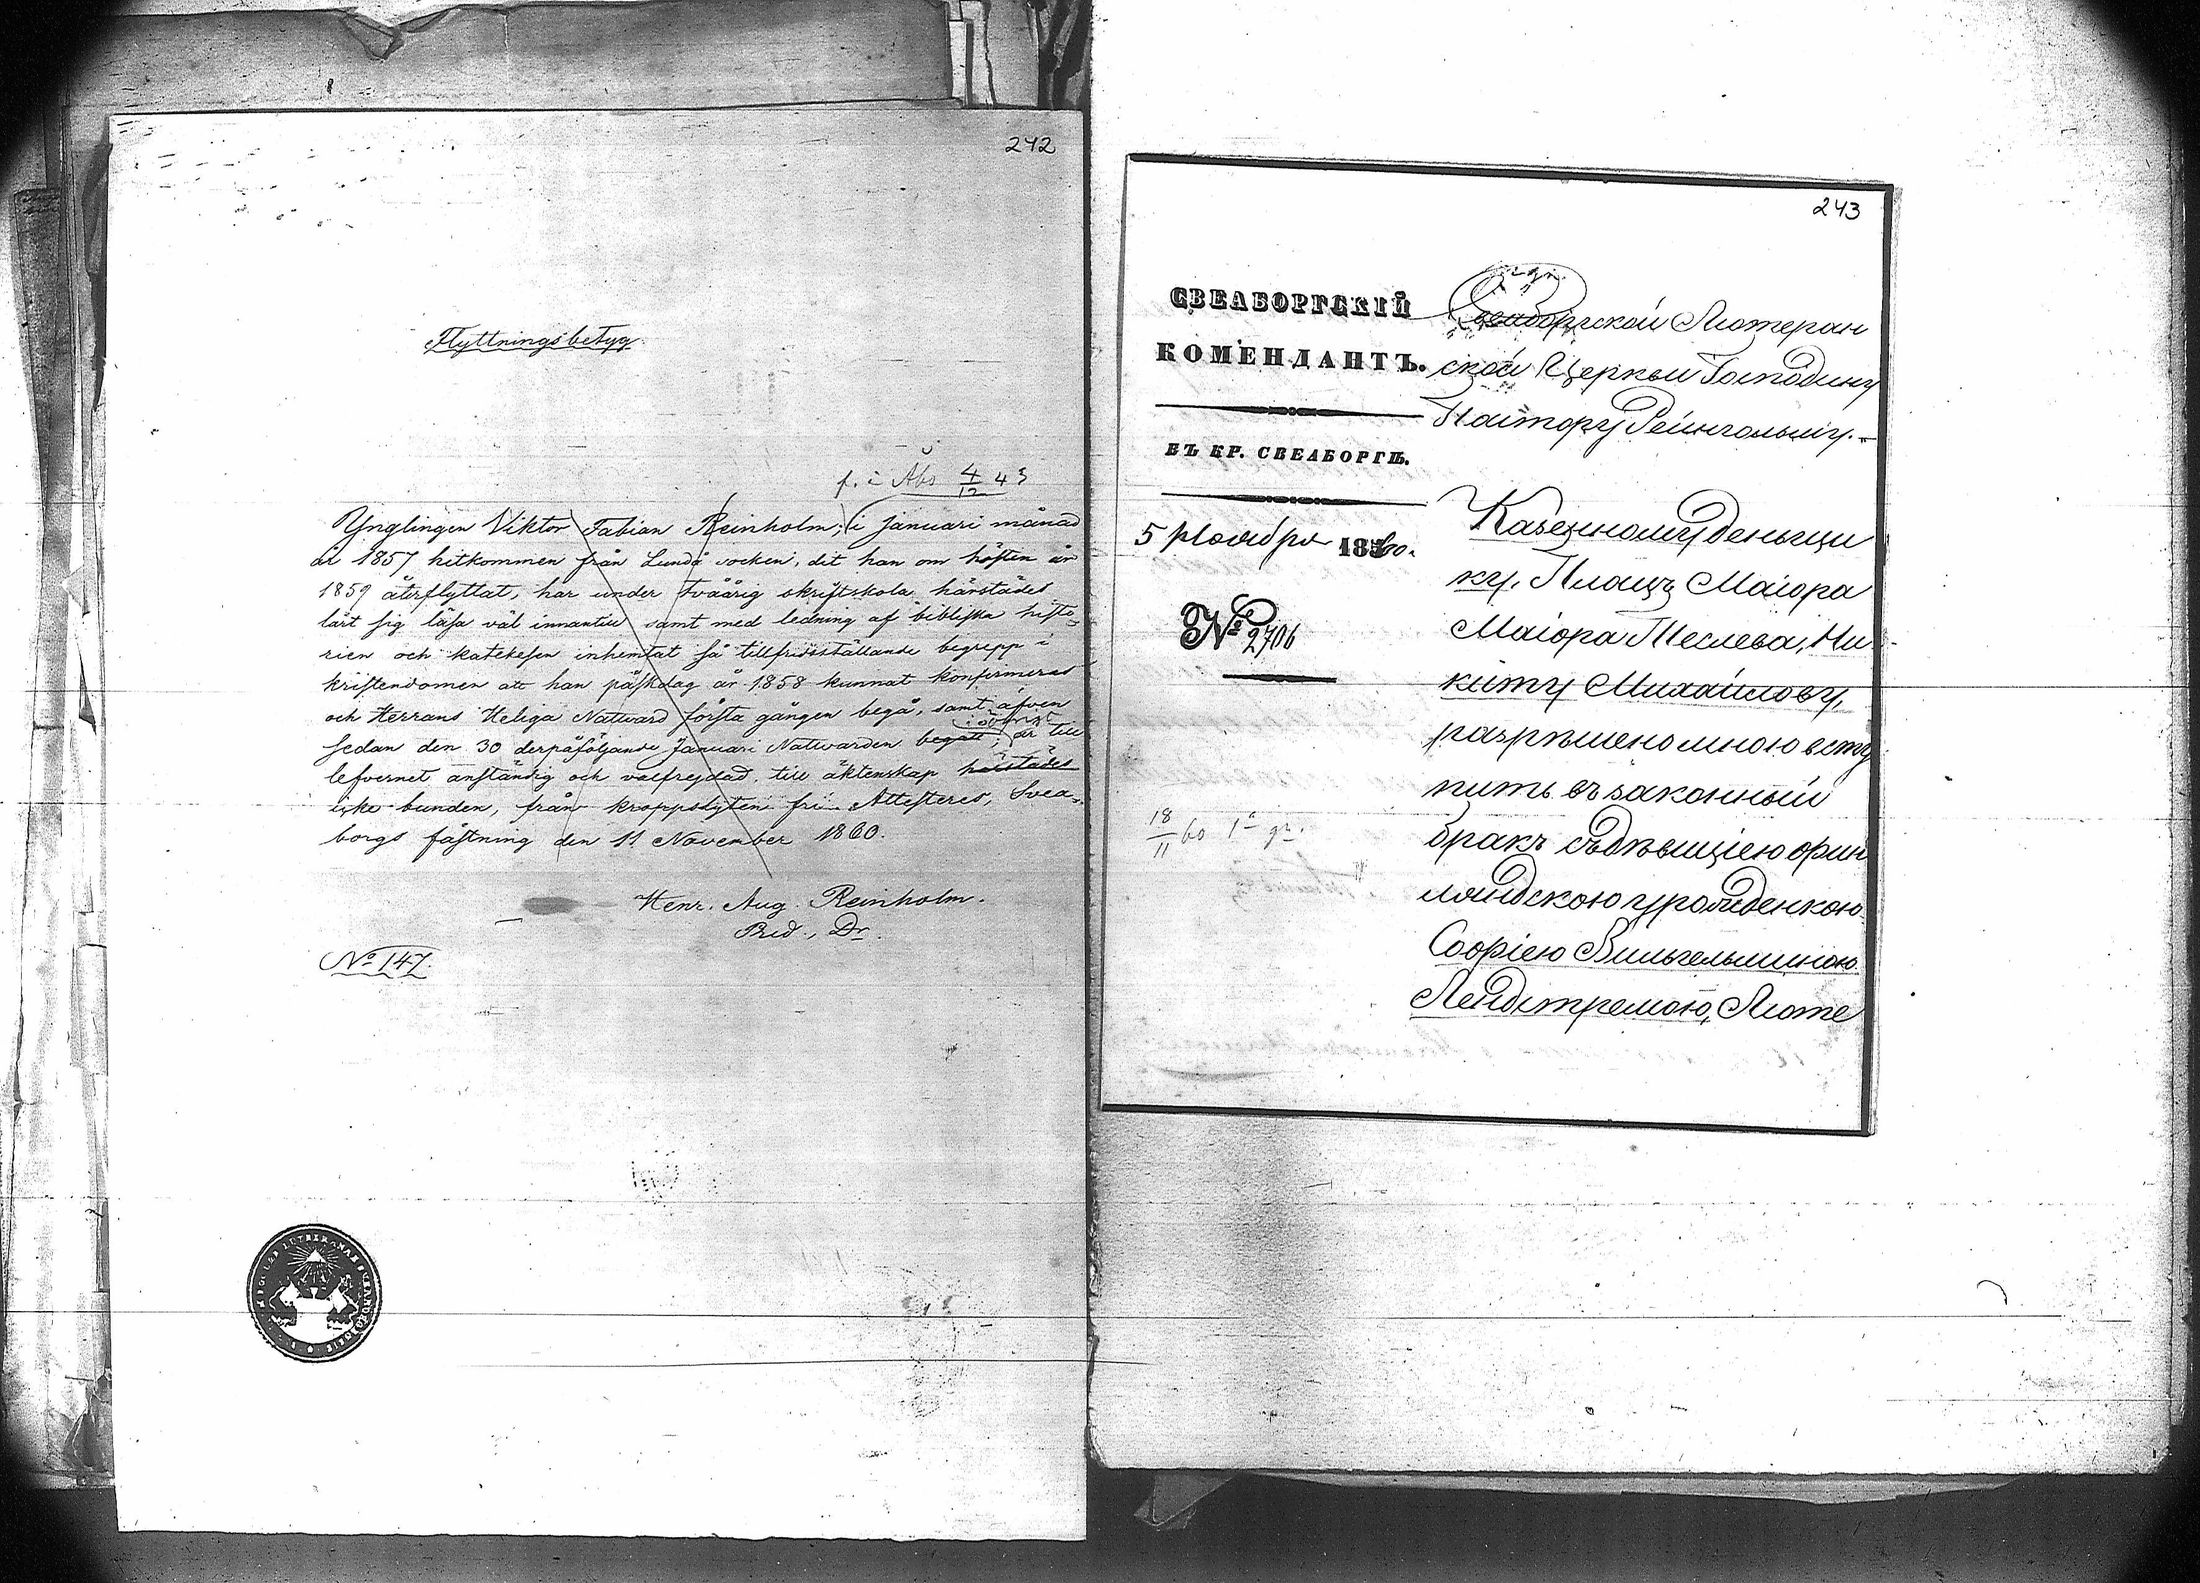 242
Flyttningsbetyg.
f. i Åbo 4/12 43
Ynglingen Viktor Fabian Reinholm, i januari månad
år 1857 hitkommen från Lundå socken, dit han om hösten år
1859 återflyttat, har under tvåårig skriftskola härstädes
lärt sig läsa väl innantill samt med ledning af bibliska histo-
rien och katekesen inhemtat så tillfridsställande begrepp i
kristendomen att han påskdag år 1858 kunnat konfirmeras
och Herrans Heliga Nattvard första gången begå, samt äfven
sedan den 30 derpåföljande Januari Nattvarden begått; är till
lefvernet anständig och välfrejdad, till äktenskap härstädes
icke bunden, från kroppslyten fri. Attesteras, Svea-
borgs fästning den 11 November 1860.
Henr. Aug. Reinholm.
Pred., Dr.
No 147.
243
СВЕАБОРГСКІЙ
КОМЕНДАНТЪ.
ВЪ КР. СВЕАБОРГѢ.
5 Ноября 1860.
№ 2706
18/11 60 1a gr.
Свеаборгской Лютеран
ской Церкви Господину
Пастору Рейнгольму.
Казенному деньщи
ку, Плацъ Маіора
Маіора Теслева, Ни-
киту Михайлову,
разрѣшено мною всту
пить въ законный
бракъ съ дѣвицею фин
ляндскою уроженкою
Софіею Вильгельминою
Лендстремою, Люте